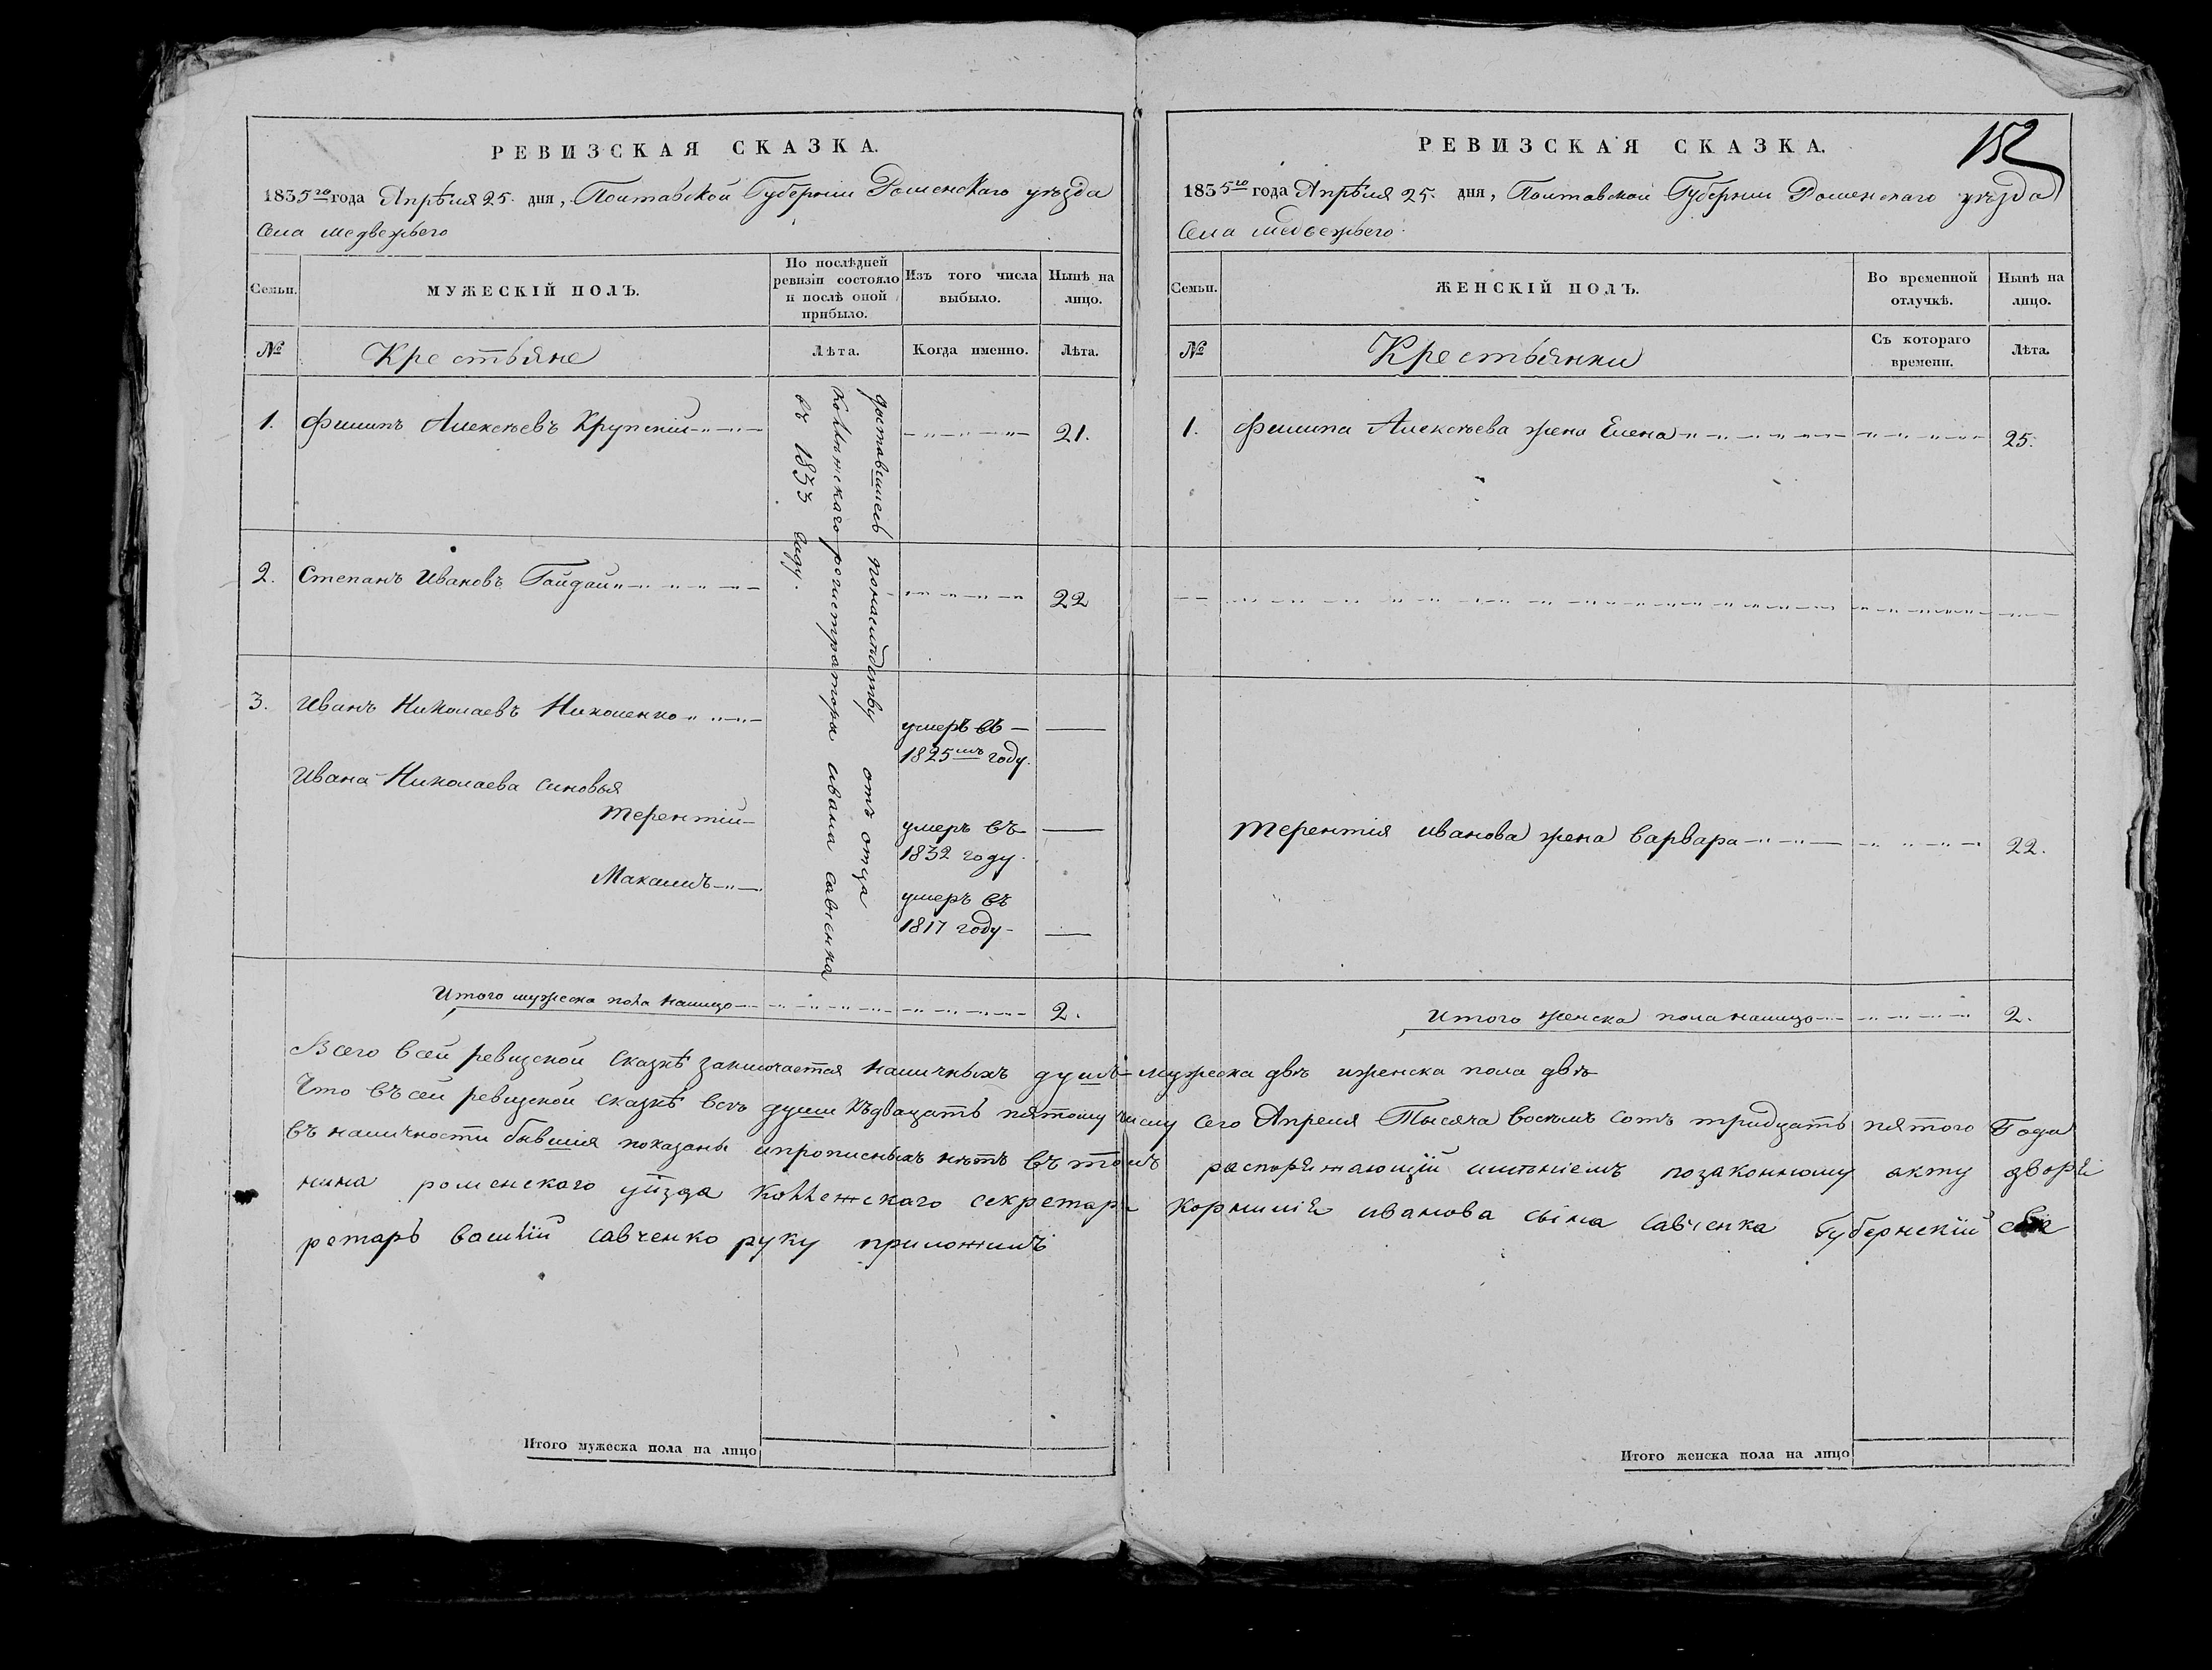 РЕВИЗСКАЯ СКАЗКА.
1835го года Апрѣля 25. дня, Полтавской Губерніи Роменскаго уѣзда
Села медвежьего
Семьи.
МУЖЕСКІЙ ПОЛЪ.
По послѣдней ревизіи состояло и послѣ оной прибыло.
Изъ того числа выбыло.
Нынѣ на лицо.
№
Крестьяне
Лѣта.
Когда именно.
Лѣта.
доставшиесь понаслѣдству отъ отца
коллежскаго регистратора ивана савченка
въ 1833 году.
1. Филипъ Алексѣевъ Крупский 21.
2. Степанъ Ивановъ Гайдай 22
3. Иванъ Николаевъ Николенко
умеръ въ
1825мъ году.
Ивана Николаева синовья
терентий
умеръ въ
1832 году.
Максимъ
умеръ въ
1817 году
Итого мужеска пола налицо 2.
РЕВИЗСКАЯ СКАЗКА.
152
1835го года Апрѣля 25. дня, Полтавской Губерніи Роменскаго уѣзда
Села медвежьего.
Семьи.
ЖЕНСКІЙ ПОЛЪ.
Во временной отлучкѣ.
Нынѣ на лицо.
№
Крестьянки
Съ котораго времени.
Лѣта.
1. Филипа Алексѣева жена Елена 25.
терентія иванова жена варвара 22.
Итого женска пола налицо 2.
Всего всей ревизской сказкѣ заключается наличныхъ душъ мужеска двѣ иженска пола двѣ
Что въсей ревизской сказкѣ всѣ души къдвацать пятому числу сего Апреля Тысяча восемъ сотъ тридцать пятого Года
въ наличности бывшия показаны ипрописныхъ нѣтъ въ томъ распоряжающій имѣніемъ позаконному акту дворя
нина роменскаго уѣзда коллежскаго секретаря корнилія иванова сына савченка Губернский сек
ретарь василій савченко руку приложилъ
Итого мужеска пола на лицо
Итого женска пола на лицо